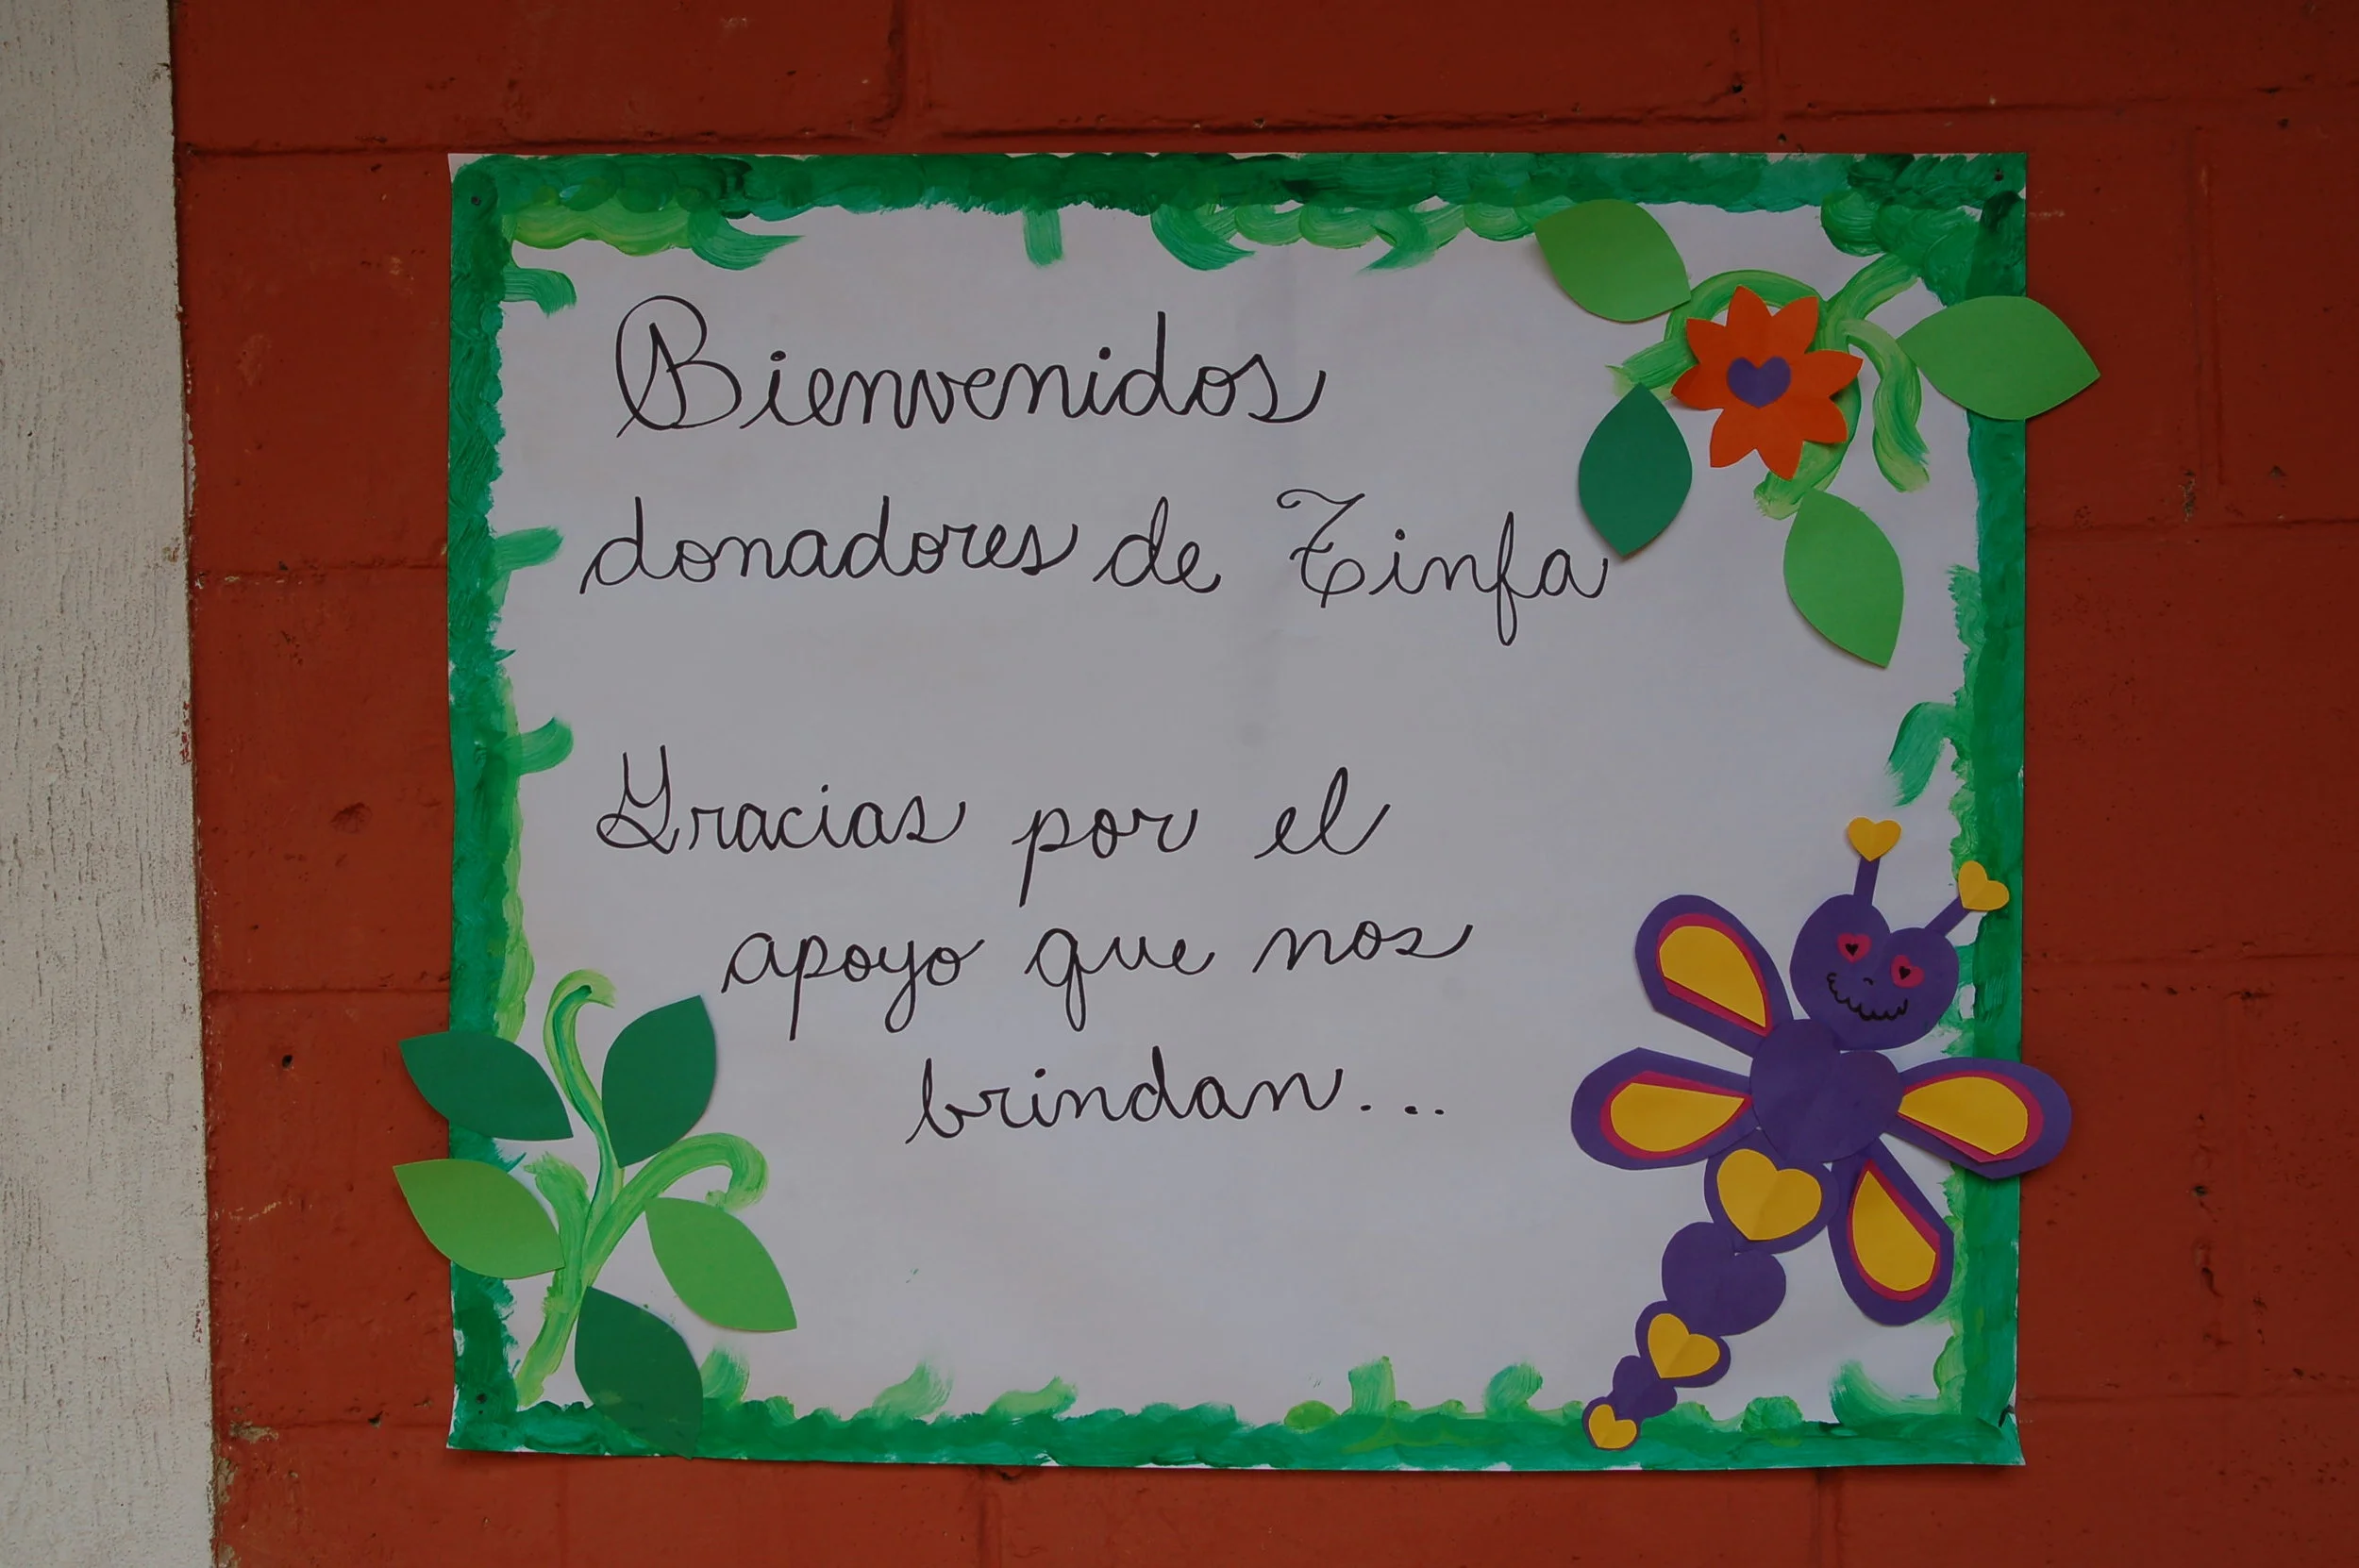 Bienvenidos
donadores de Tinfa
Gracias por el
apoyo que nos
brindan...